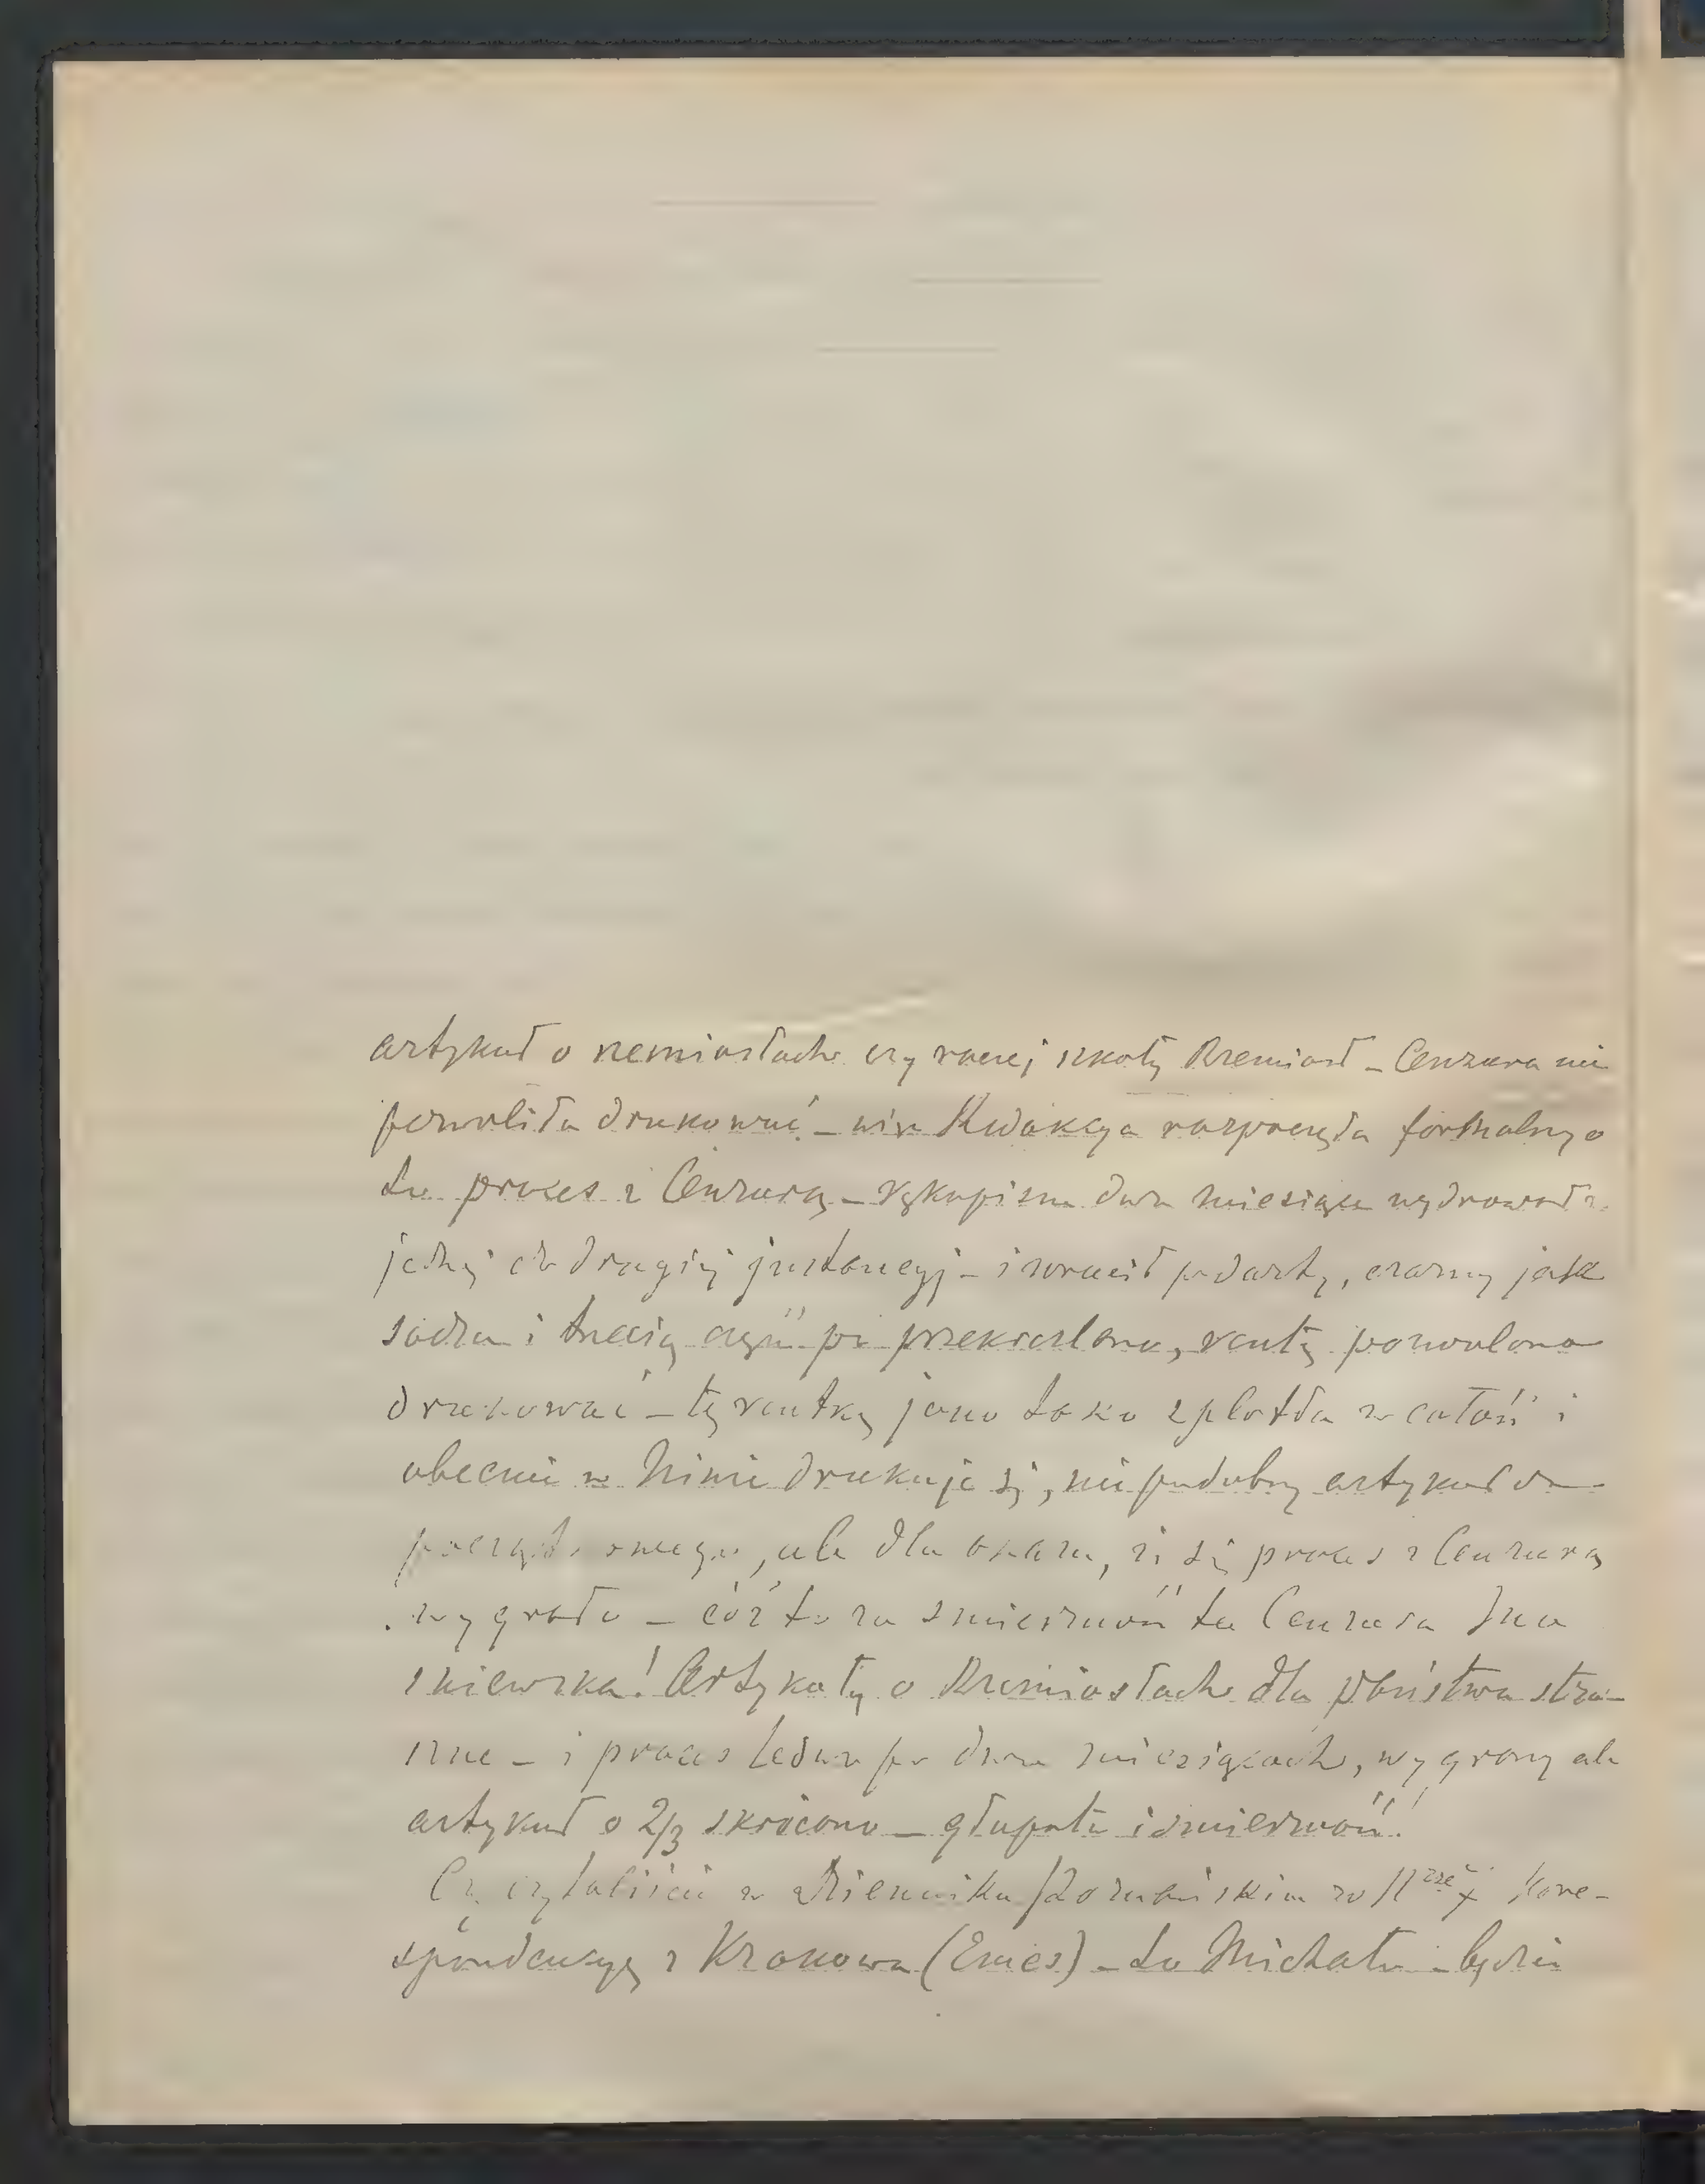 artykuł o rzemiosłach czy raczej szkoły Rzemiosł – Cenzura nie
pozwoliła drukować – więc Redakcya rozpoczęła formalny o
to proces z Cenzurą – rękopism dwa miesiące wędrował z
jednej do drugiej instancyj – i wrócił podarty, czarny jak
sadza i trzecią część po przekreślano, resztę pozwolono
drukować – tę resztkę jako tako zplotła w całość i
obecnie w Niwie drukuje się, nie podobny artykuł do
początkowego, ale dla okazu, iż się proces z Cenzurą
wygrało – cóż to za śmieszność ta Cenzura
Artykuły o Rzemiosłach dla państwa stra-
szne – i proces ledwo po dwu miesiącach, wygrany ale
artykuł o 2/3 skrócono – głupota i śmieszność!
Czy czytaliście w Dzienniku Poznańskim w Kore-
spondencyę z Krakowa (Emes) – to Michała – będzie